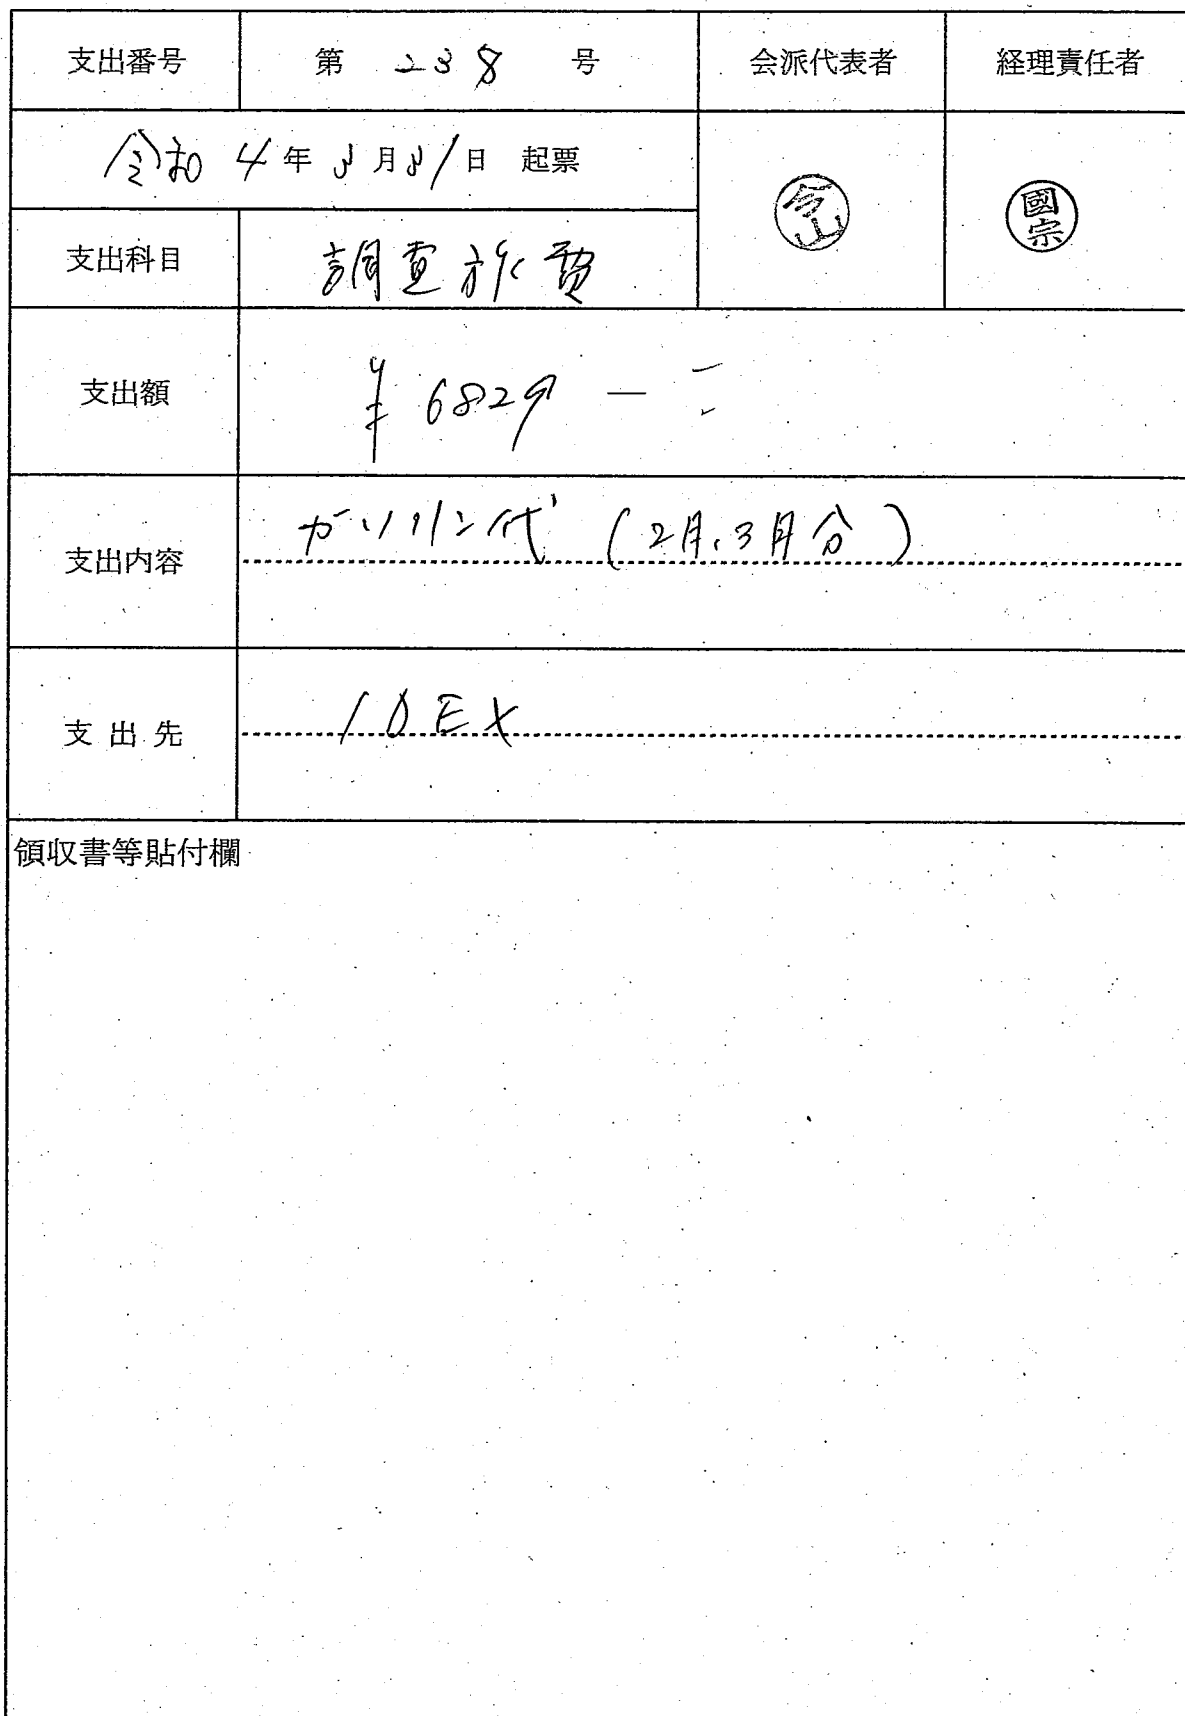 支出番号 第 238 号 会派代表者 経理責任者
令和 4 年 3 月 31 日 起票
今山 國宗
支出科目 調査旅費
支出額 ¥ 6829 —
支出内容 ガソリン代 (2月、3月分)
支出先 IDEX
領収書等貼付欄